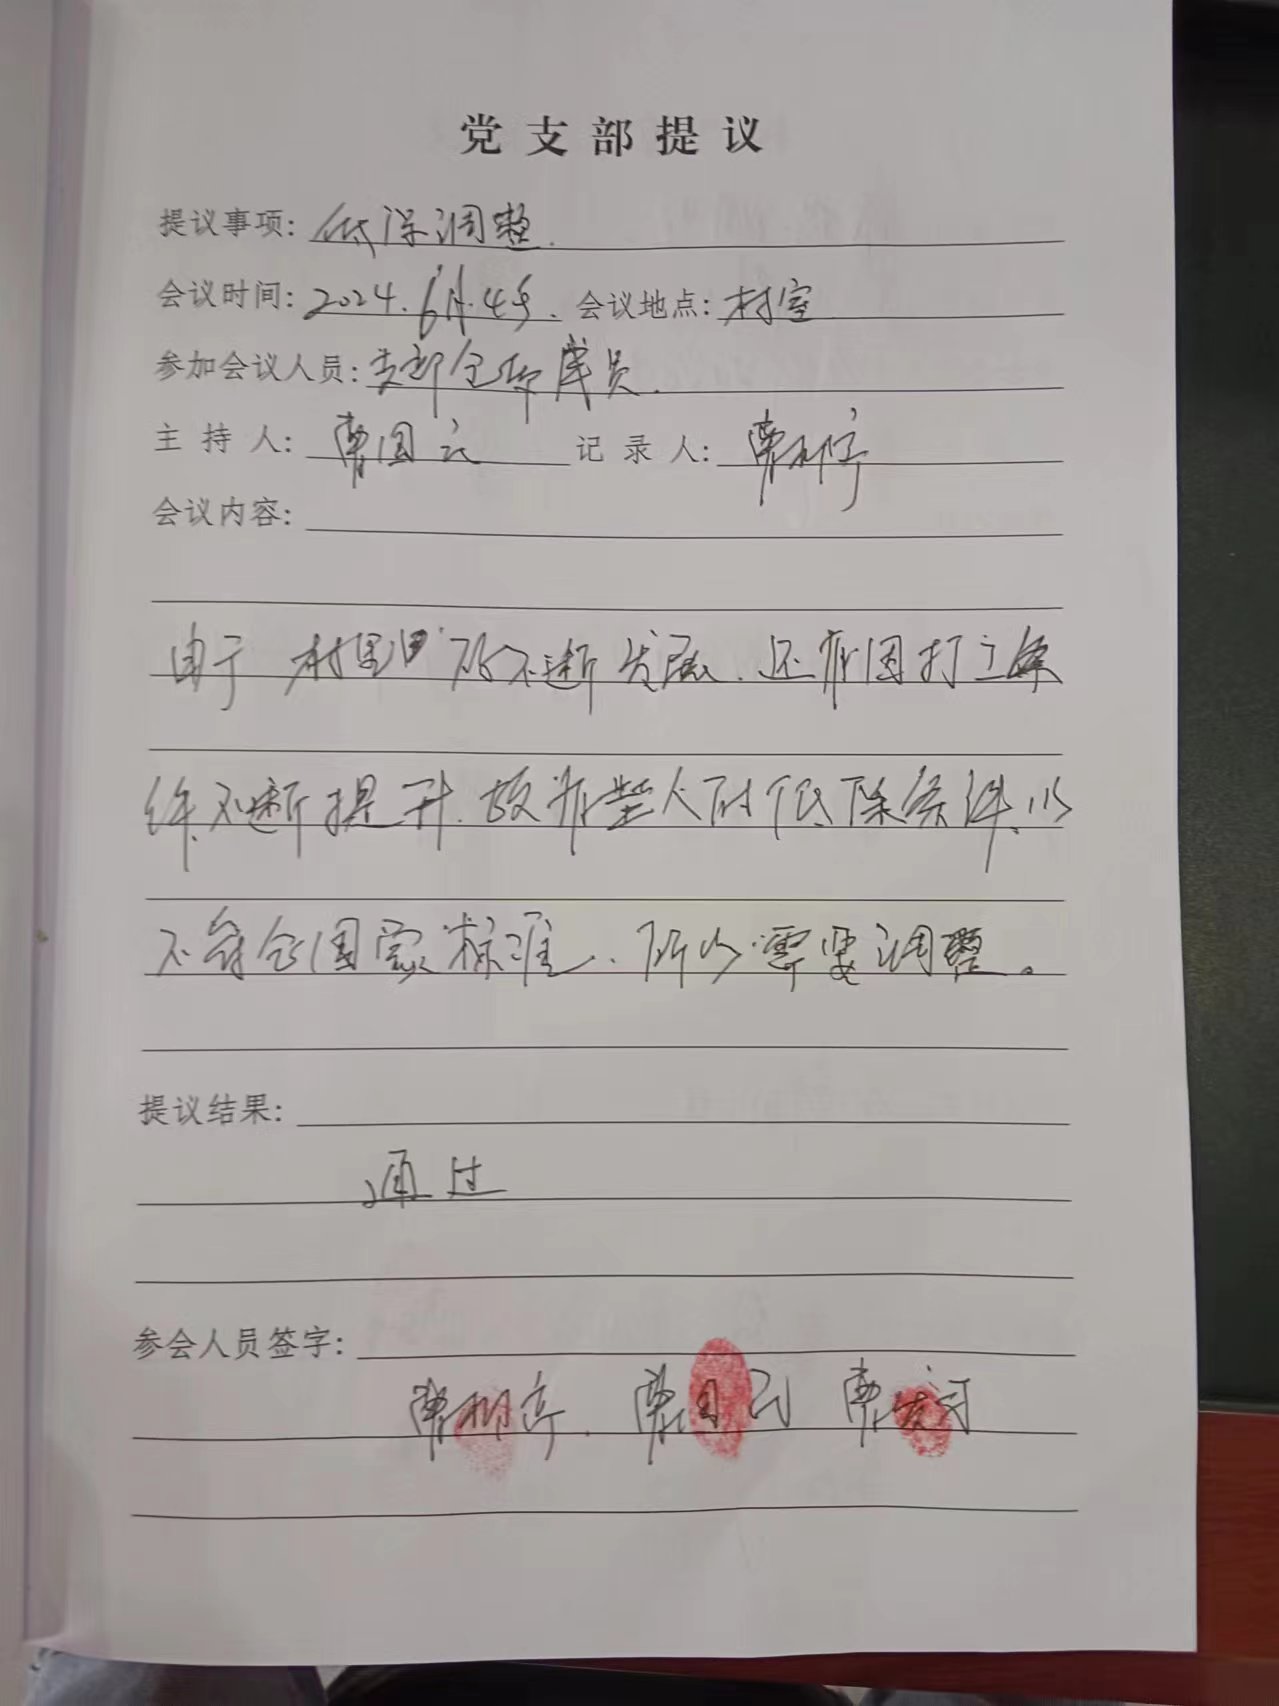 党支部提议
提议事项：低保调整.
会议时间：2024.6月.4号. 会议地点：村室
参加会议人员：支部全体成员.
主持人：曹国 记录人：曹
会议内容：
由于村里 不断发展.还有困
件不断提升.故有些人 低保条件.以
不符合国家标准.所以需要调整。
提议结果：
通过
参会人员签字：
曹 . 曹国 曹